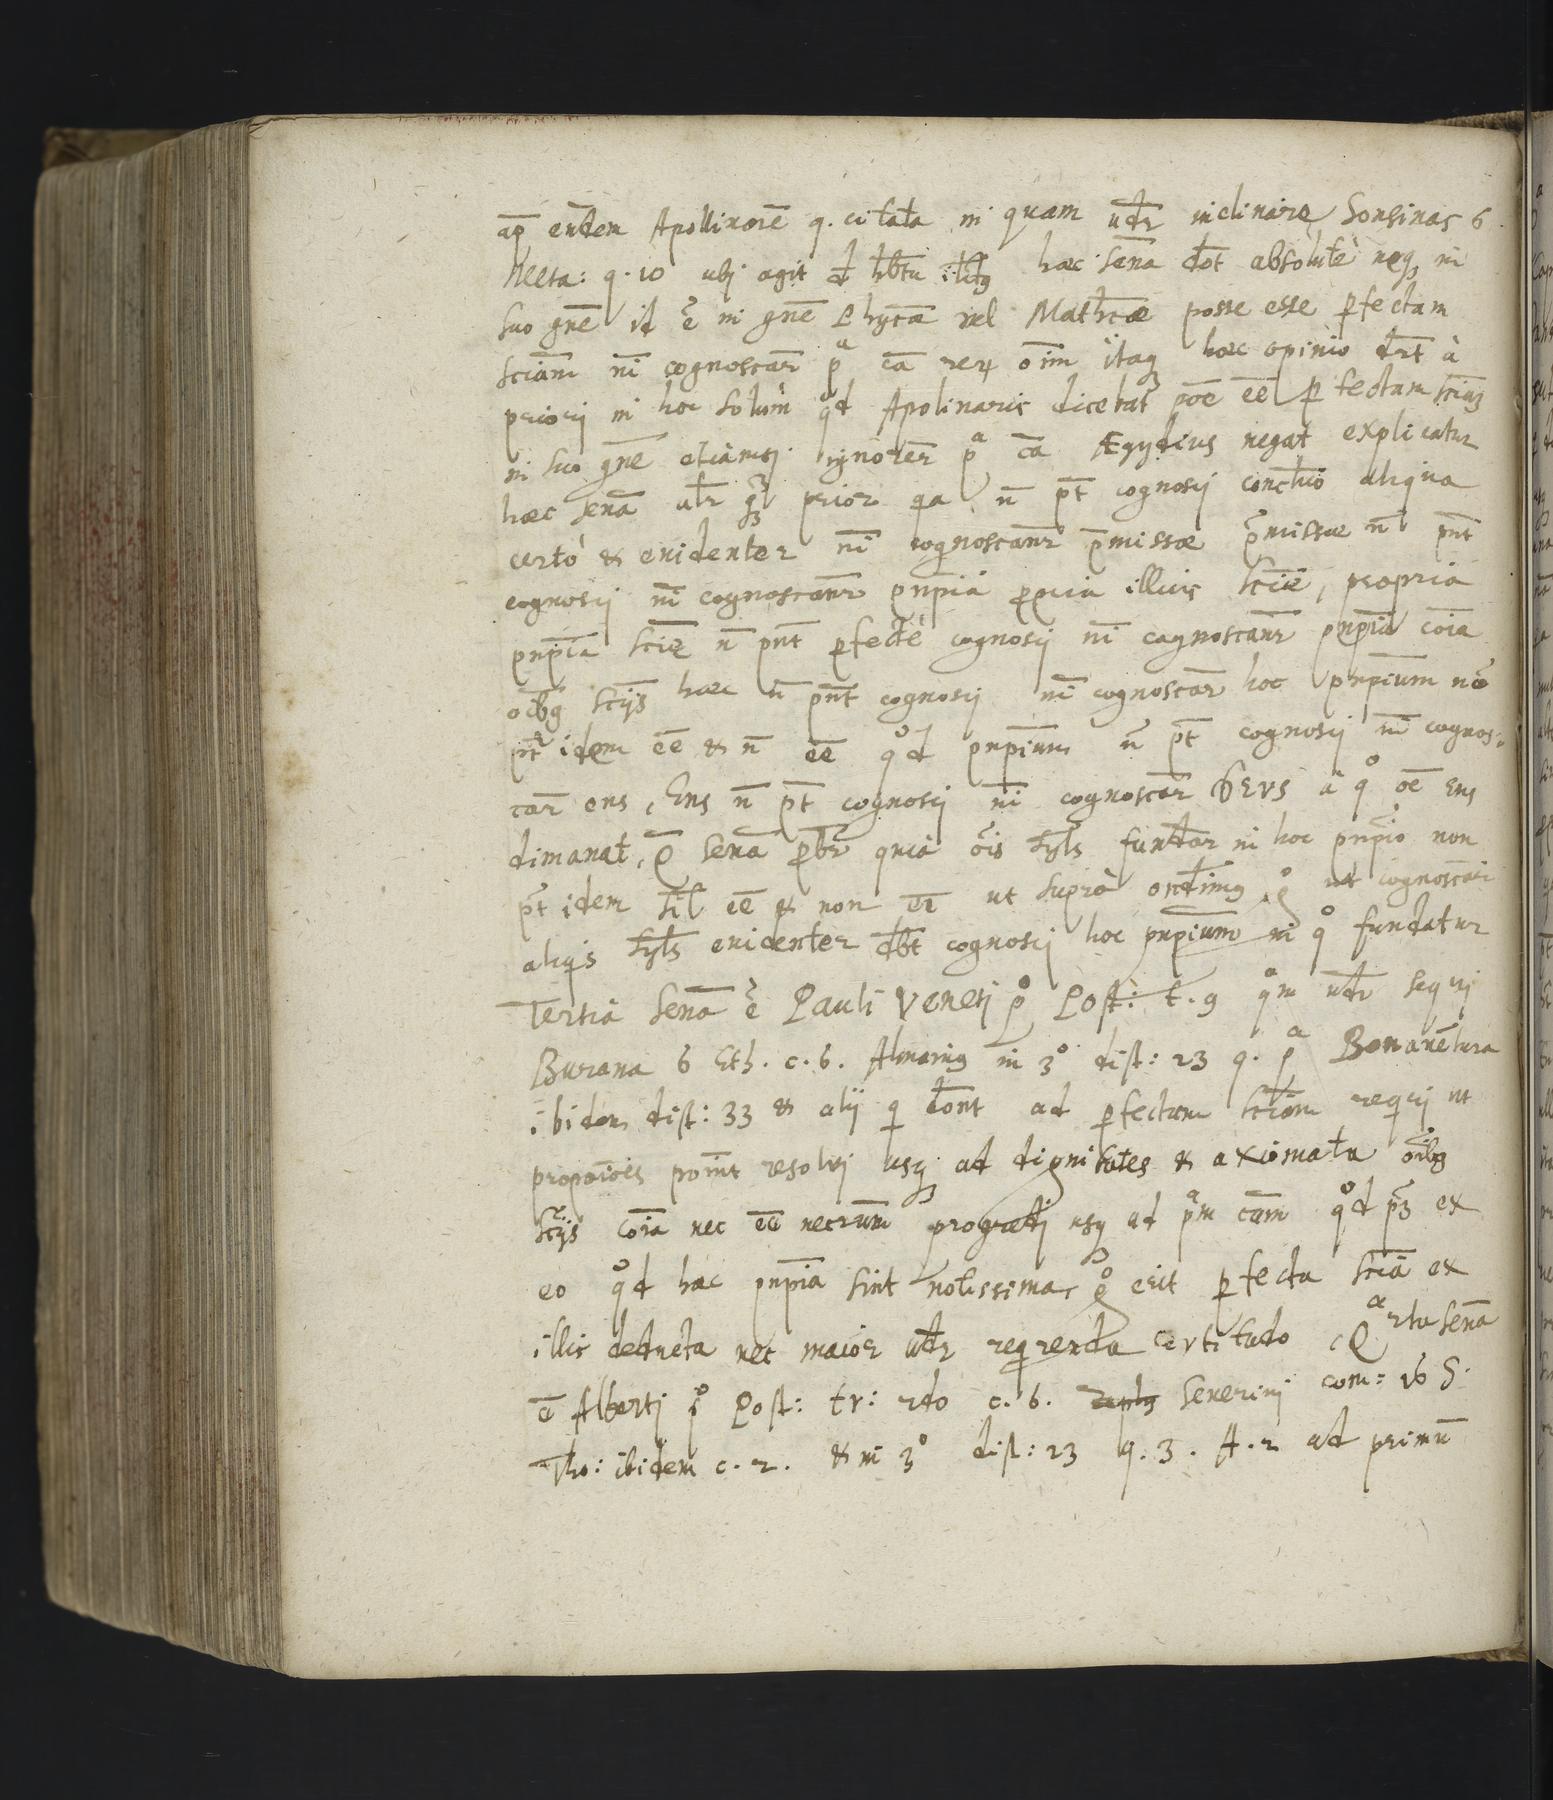 ap̄ eūdem Apollinarē q. citata in quam udr̄ inclinare Sonsinas 6
Meta: q. 10 ubi agit d̄ hb̄tu hæc senā dōt absolutè neq; in
suo gnē id ē in gnē Phycæ vel Mathcæ posse esse ꝑfectam
sciām nī cognoscar̄ pᵃ cā rerꝝ oīm itaq; hæc opinio drt̄ à
priori in hoc solum qd̊ Apolinaris dicebat poē eē ꝑfectam sciaꝫ
in suo gnē etiamsi ignoretr̄ pᵃ cā Ægydius negat explicatur
hæc senā prior qa n̄ pt̄ cognosci conclusio aliqua
certò & euidenter nī cognoscanr̄ p̄missæ p̄missæ n̄ pn̄t
cognosci nī cognoscanr̄ pnp̄ia ꝓpria illius sciē, propria
pnp̄ia sciē n̄ pn̄t ꝑfectè cognosci nī cognoscanr̄ pnp̄ia cōia
oībꝫ scijs hæc n̄ pn̄t cognosci nī cognoscar̄ hoc pnp̄ium nō
pt̄ idem eē & n̄ eē qd̊ pnp̄ium n̄ pt̄ cognosci nī cognos=
car̄ ens, Ens n̄ pt̄ cognosci nī cognoscar̄ DEVS à q̊ oē Ens
dimanat, senā ꝓbr̄ quia ōis syls̄ fundar̄ in hoc pnp̄io non
pt̄ idem sīl eē & non eē ut suprà ut cognoscar̄
aliqis syls̄ euidenter dbt̄ cognosci hoc pnp̄ium in q̊ fundatur
Tertia senā ē Pauli Veneti p̊ Post: t. 9 q̊m udr̄ sequi
Burana 6 Eth. c. 6. Almainus in 3° dist: 23 q. pᵃ Bonauētura
ibidem dist: 33 & alij q dōnt ad ꝑfectam sciām reqri ut
propōiōes resolui usq; ad dignitates & axiomata oībꝫ
scijs cōia nec eē necrium progredi usq; ad pᵃm cām qd̊ pꝫ ex
eo qd̊ hæc pnp̄ia sint notissima, g̊ erit ꝑfecta scīa ex
illis deducta nec maior udr̄ reqrenda certitudo Qᵃrta senā
ē Alberti p̊ Post: tr: 2do c. 6. Seuerini com: 16 S.
Tho: ibidem c. 2. & in 3° dist: 23 q. 3. A. 2 ad primū